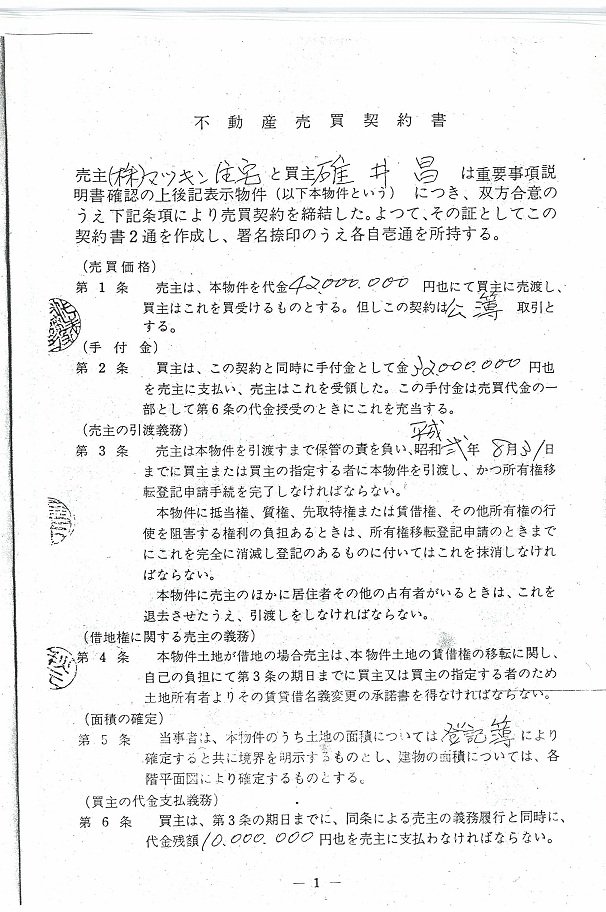 不動産売買契約書
売主(株)マツキン住宅と買主碓井 昌 は重要事項説
明書確認の上後記表示物件（以下本物件という）につき、双方合意の
うえ下記条項により売買契約を締結した。よつて、その証としてこの
契約書2通を作成し、署名捺印のうえ各自壱通を所持する。
（売買価格）
第1条 売主は、本物件を代金42,000,000円也にて買主に売渡し、
買主はこれを買受けるものとする。但しこの契約は公簿取引と
する。
（手付金）
第2条 買主は、この契約と同時に手付金として金32,000,000円也
を売主に支払い、売主はこれを受領した。この手付金は売買代金の一
部として第6条の代金授受のときにこれを充当する。
（売主の引渡義務）
平成
第3条 売主は本物件を引渡すまで保管の責を負い、昭和弐年8月31日
までに買主または買主の指定する者に本物件を引渡し、かつ所有権移
転登記申請手続を完了しなければならない。
本物件に抵当権、質権、先取特権または賃借権、その他所有権の行
使を阻害する権利の負担あるときは、所有権移転登記申請のときまで
にこれを完全に消滅し登記のあるものに付いてはこれを抹消しなけれ
ばならない。
本物件に売主のほかに居住者その他の占有者がいるときは、これを
退去させたうえ、引渡しをしなければならない。
（借地権に関する売主の義務）
第4条 本物件土地が借地の場合売主は、本物件土地の賃借権の移転に関し、
自己の負担にて第3条の期日までに買主又は買主の指定する者のため
土地所有者よりその賃貸借名義変更の承諾書を得なければならない。
（面積の確定）
第5条 当事者は、本物件のうち土地の面積については登記簿により
確定すると共に境界を明示するものとし、建物の面積については、各
階平面図により確定するものとする。
（買主の代金支払義務）
第6条 買主は、第3条の期日までに、同条による売主の義務履行と同時に、
代金残額10,000,000円也を売主に支払わなければならない。
— 1 —